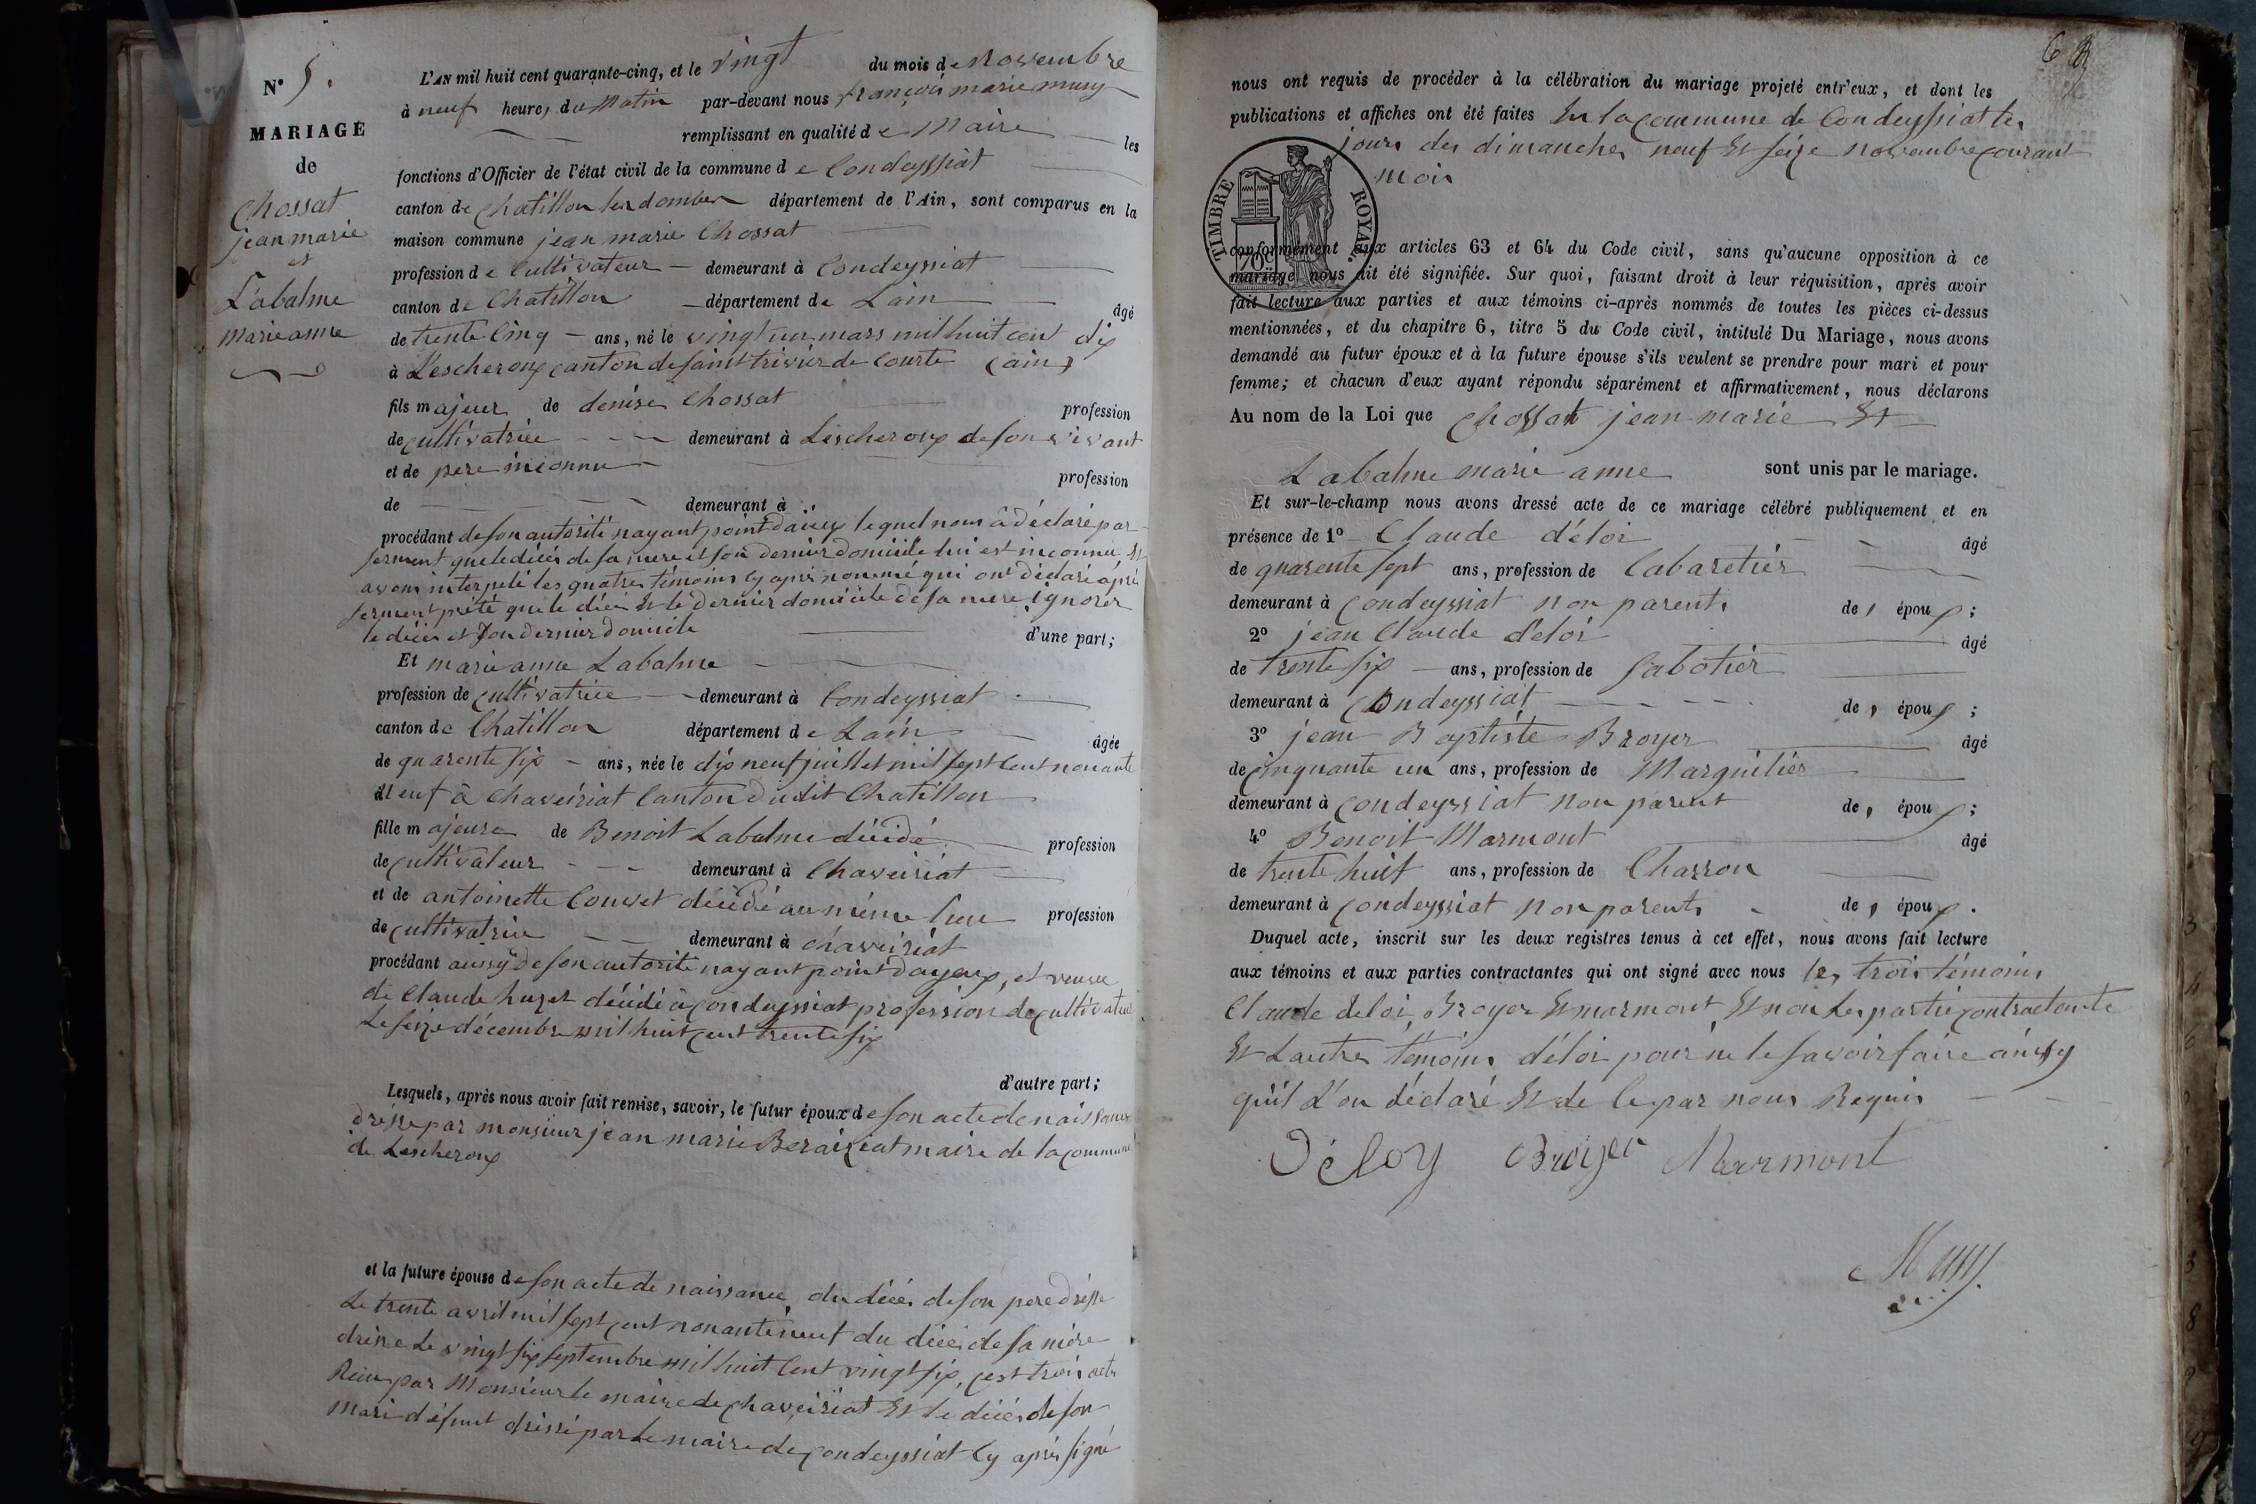 N° 5.
MARIAGE
de
Chossat
jean marie
et
Labalme
marie anne
L'AN mil huit cent quarante-cinq, et le vingt du mois de Novembre
à neuf heures du Matin par-devant nous françois marie musy
remplissant en qualité de Maire les
fonctions d'Officier de l'état civil de la commune de Condeyssiat
canton de chatillon les dombes département de l'Ain, sont comparus en la
maison commune jean marie Chossat
profession de Cultivateur demeurant à Condeyssiat
canton de Chatillon département de Lain âgé
de trente Cinq ans, né le vingt un mars mil huit cent dix
à Lescheroux canton de saint trivier de Courte (ain)
fils majeur de denise Chossat profession
de cultivatrice demeurant à Lescheroux de son vivant
et de pere inconnu profession
de demeurant à
procédant de son autorité nayant point daieux lequel nous à déclaré par
serment que le décès de sa mere et son dernier domicile lui est inconnu Et
avons interpelé les quatres témoins cy après nommé qui ont déclaré après
serment prété que le décès Et le dernier domicile de sa mere ignorer
le décès et son dernier domicile d'une part;
Et marie anne Labalme
profession de cultivatrice demeurant à Condeyssiat
canton de Chatillon département de Lain âgée
de quarente six ans, née le dix neuf juillet mil sept Cent nonante
neuf à chaveiriat Canton dudit Chatillon
fille majeure de Benoit Labalme décédé profession
de cultivateur demeurant à Chaveiriat
et de antoinette Couvet décédé au même lieu profession
de cultivatrice demeurant à chaveiriat
procédant aussy de son autorite nayant point dayeux, et veuve
de Claude huget décédé à condeyssiat profession de cultivateur
Le seize décembre mil huit cent trente six
d'autre part;
Lesquels, après nous avoir fait remise, savoir, le futur époux de son acte de naissance
dréssé par monsieur jean marie Beraiziat maire de la commune
de Lescheroux
et la future épouse de son acte de naissance, du décès de son pere dréssé
Le trente avril mil sept cent nonante neuf du décès de sa mère
drésse Le vingt six septembre mil huit Cent vingt six, cest trois acte
Reçu par Monsieur le maire de chaveiriat Et le décès de son
mari défunt dressé par Le maire de condeyssiat Cy après signé
6
nous ont requis de procéder à la célébration du mariage projeté entr'eux, et dont les
publications et affiches ont été faites En la commune de Condeyssiat les
jours des dimanches neuf Et seize novembre courant
mois
TIMBRE ROYAL.
70c
conformément aux articles 63 et 64 du Code civil, sans qu'aucune opposition à ce
mariage nous ait été signifiée. Sur quoi, faisant droit à leur réquisition, après avoir
fait lecture aux parties et aux témoins ci-après nommés de toutes les pièces ci-dessus
mentionnées, et du chapitre 6, titre 5 du Code civil, intitulé Du Mariage, nous avons
demandé au futur époux et à la future épouse s'ils veulent se prendre pour mari et pour
femme; et chacun d'eux ayant répondu séparément et affirmativement, nous déclarons
Au nom de la Loi que Chossat jean marie Et
Labalme marie anne sont unis par le mariage.
Et sur-le-champ nous avons dressé acte de ce mariage célébré publiquement et en
présence de 1° Claude déloi âgé
de quarente sept ans, profession de Cabaretier
demeurant à condeyssiat non parents des époux;
2° jean Claude déloi âgé
de trente six ans, profession de Sabotier
demeurant à Condeyssiat des époux;
3° jean Baptiste Broyer âgé
de cinquante un ans, profession de Marguilier
demeurant à condeyssiat non parent des époux;
4° Benoit Marmont âgé
de trente huit ans, profession de Charron
demeurant à condeyssiat non parents des époux.
Duquel acte, inscrit sur les deux registres tenus à cet effet, nous avons fait lecture
aux témoins et aux parties contractantes qui ont signé avec nous les trois témoins
Claude deloi, Broyer Et marmont Et non Les partie contractante
Et Lautres témoins déloi pour ne le savoir faire ainsy
qu'il L'on déclaré Et de ce par nous Requis
Déloy Broyer Marmont
Musy